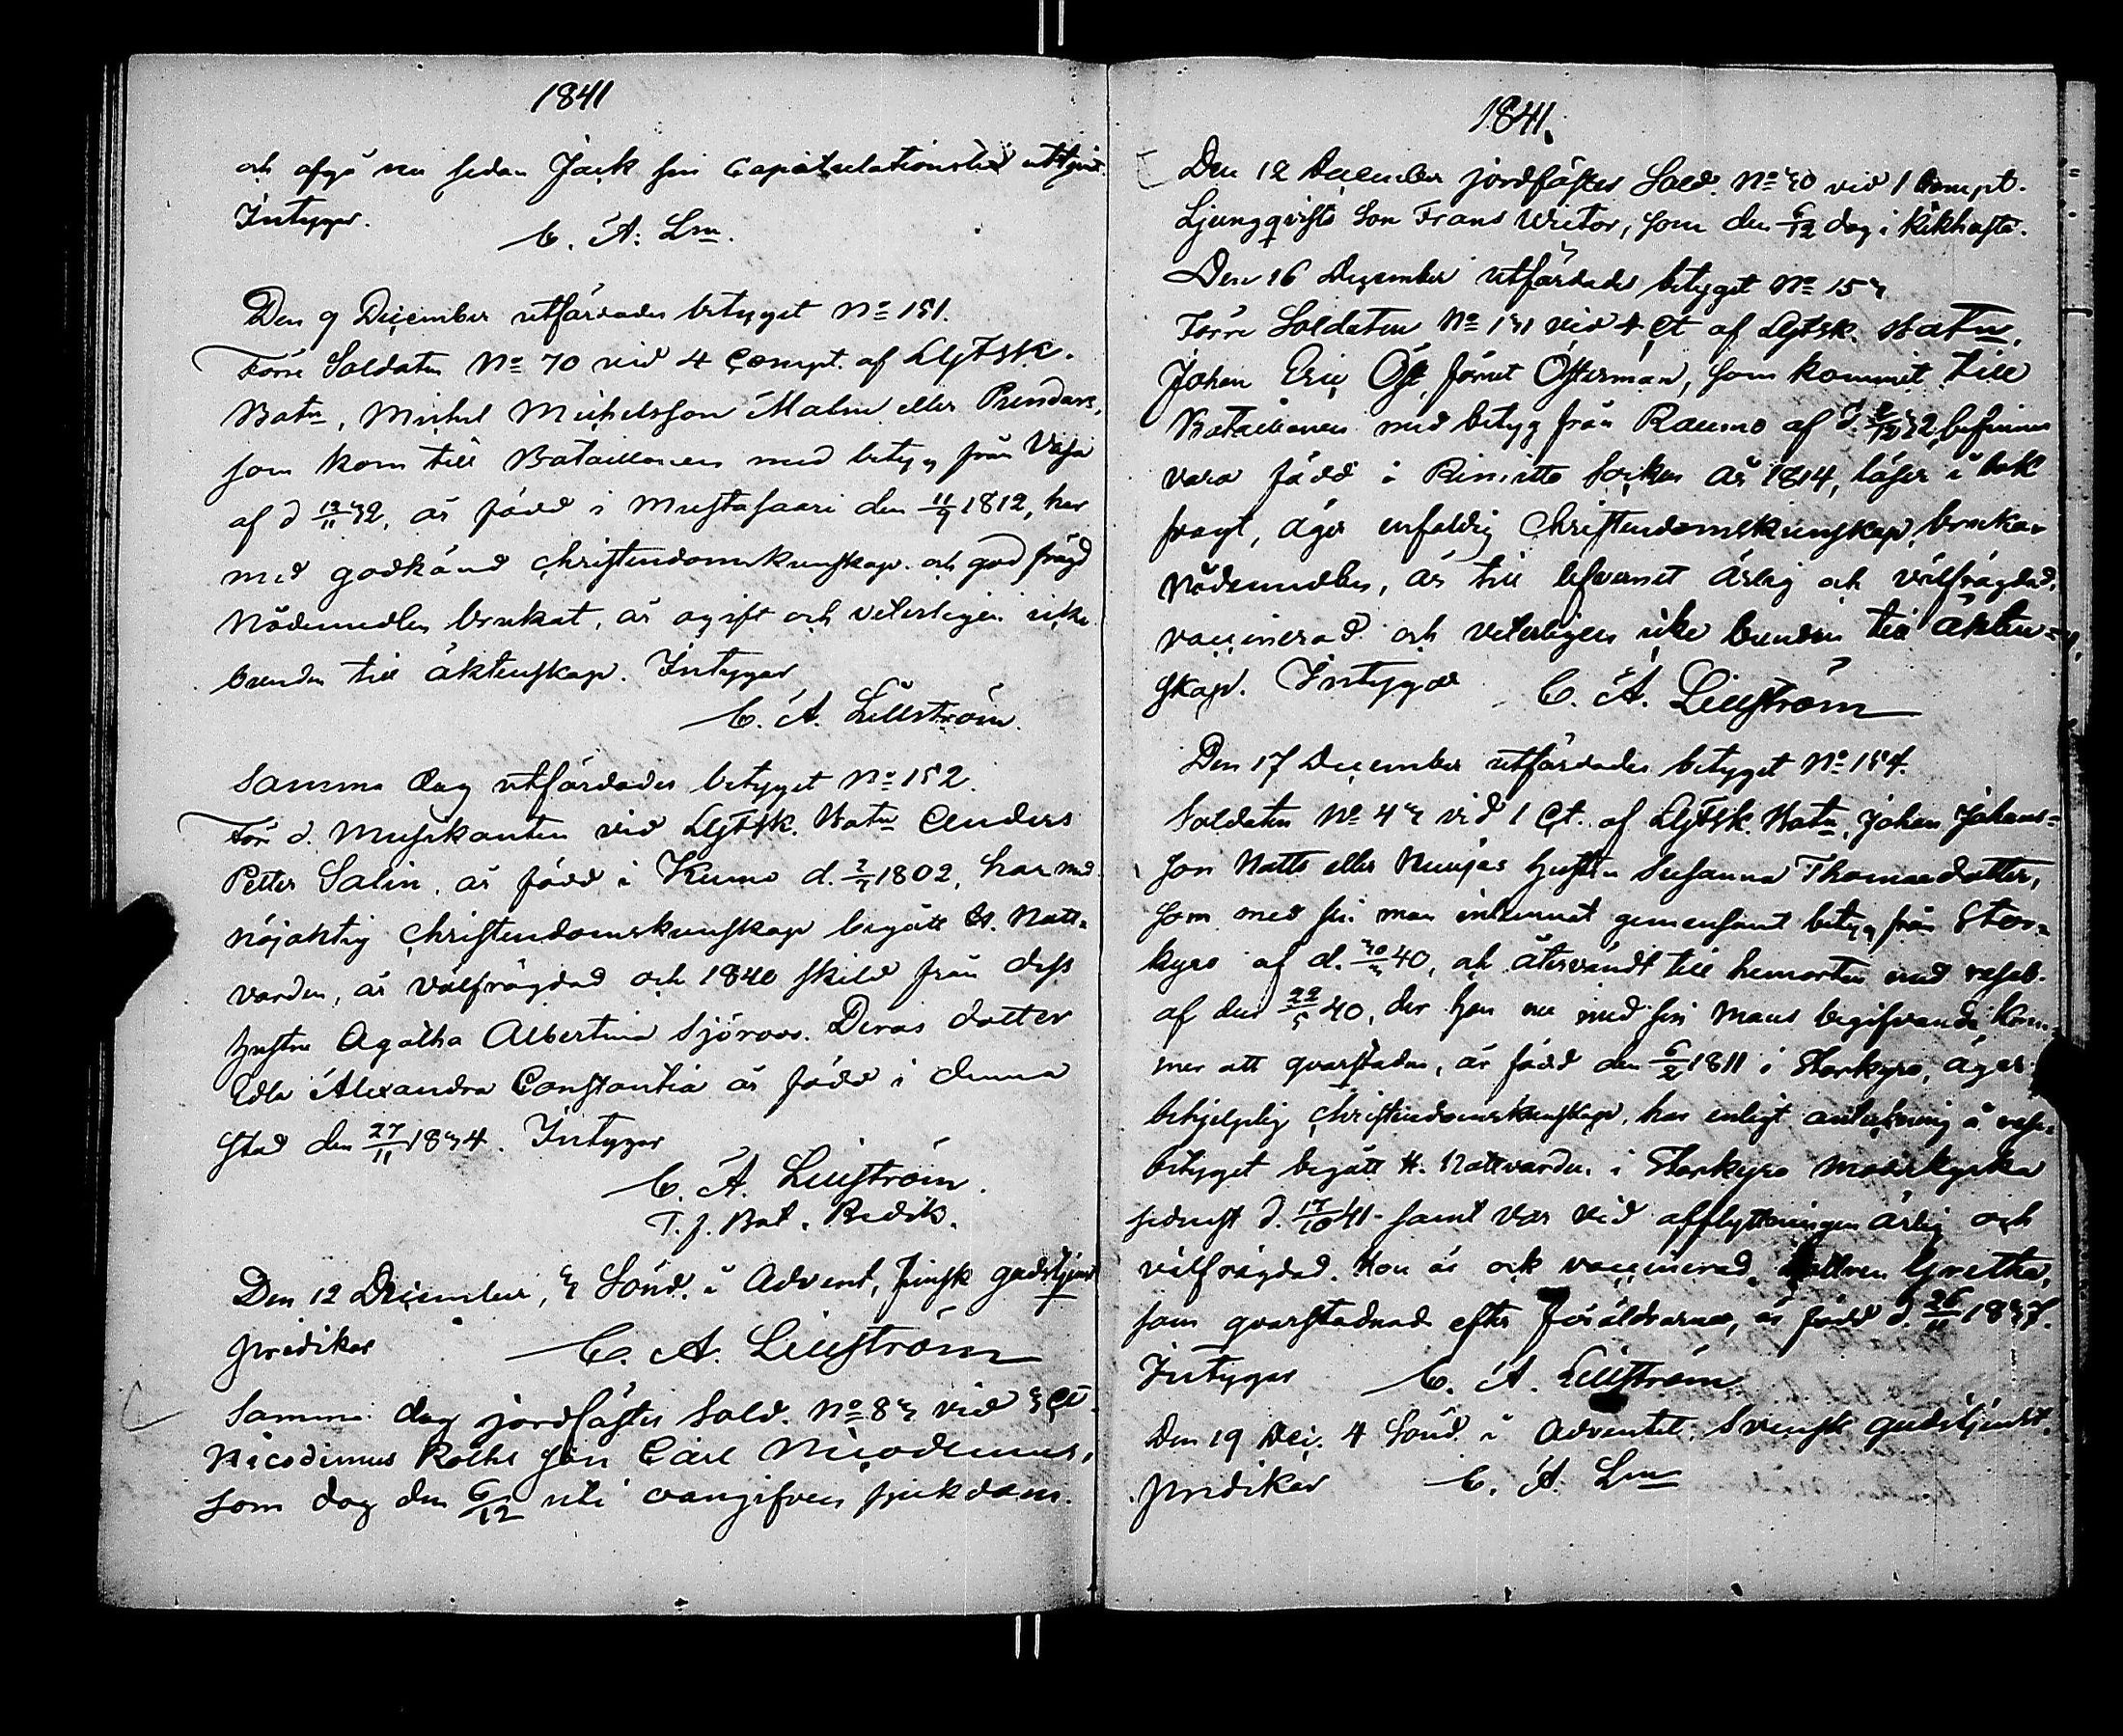 1841
och afgå nu sedan Jack sin Capitulationstid uttjent.
Intygar.
C. A. Lm.
Den 9 December utfärdades betyget No 151.
Förre Soldaten No 70 vid 4 Compt. af Lljfsk.
Batn, Michel Michelsson Malm eller
som kom till Bataillonen med betyg från Vasa
af d 12/11 32, är född i Mustasaari den 11/9 1812, har
med godkänd christendomskunskap och god frägd
Nådemedlen brukat, är ogift och veterligen icke
bunden till äktenskap. Intygar
C. A. Lillström.
Samma dag utfärdades betyget No 152.
För d. Musikanten vid Lljfsk. Batn Anders
Petter Salin, är född i Kumo d. 2/7 1802, har med
nöjaktig christendomskunskap begått H. Natt-
varden, är välfrägdad och 1840 skild från dess
hustru Agatha Albertina Sjöroos. Deras dotter
Edla Alexandra Constantia är född i denna
stad den 27/11 1834. Intygar
C. A. Lillström.
T. f. Bat. Predik.
Den 12 December, 3 Sönd. i Advent, finsk gudstjenst
predikar C. A. Lillström
Samma dag jordfästes Sold. No 83 vid 3 Ct.
Nicodimus Roths son Carl Nicodemus,
som dog den 6/12 uti oangifven sjukdom.
1841.
Den 12 December jordfästes Sold. No 30 vid 1 Compt.
Ljungqvists Son Frans Victor, som den 6/12 dog i Kikhosta.
Den 16 December utfärdades betyget No 153
Förre Soldaten No 131 vid 4 Ct af Lljfsk. Batn,
Johan Eric Öst, förut Österman, som kommit till
Bataillonen med betyg från Raumo af d. 32, befinnes
vara född i Rimitto Socken År 1814, läser i bok
svagt, äger enfaldig Christendomskunskap, brukar
Nådemedlen, är till lefvernet ärlig och välfrägdad,
vaccinerad och veterligen icke bunden till äkten-
skap. Intygar C. A. Lillström
Den 17 December utfärdades betyget No 154.
Soldaten No 43 vid 1 Ct. af Lljfsk. Batn, Johan Johans-
son Natts eller hustru Susanna Thomasdotter,
som med sin man inlemnat gemensamt betyg från Stor-
kyro af d. 30/3 40, och återvändt till hemorten med reseb.
af den 22/5 40, der hon nu med sin Mans begifvande kom-
mer att qvarstadna, är född den 6/2 1811 i Storkyro, äger
behjelplig christendomskunskap, har enligt anteckning å rese-
betyget begått H. Nattvarden i Storkyro Moderkyrka
sednast d. 17/10 41 samt var vid afflyttningen ärlig och
välfrägdad. Hon är ock vaccinerad. Dottren Gretha,
som qvarstadnade efter föräldrarna, är född d. 26/11 1837.
Intygar C. A. Lillström
Den 19 Dec. 4 Sönd. i Adventet, Svensk gudstjenst.
predikar C. A. Lm